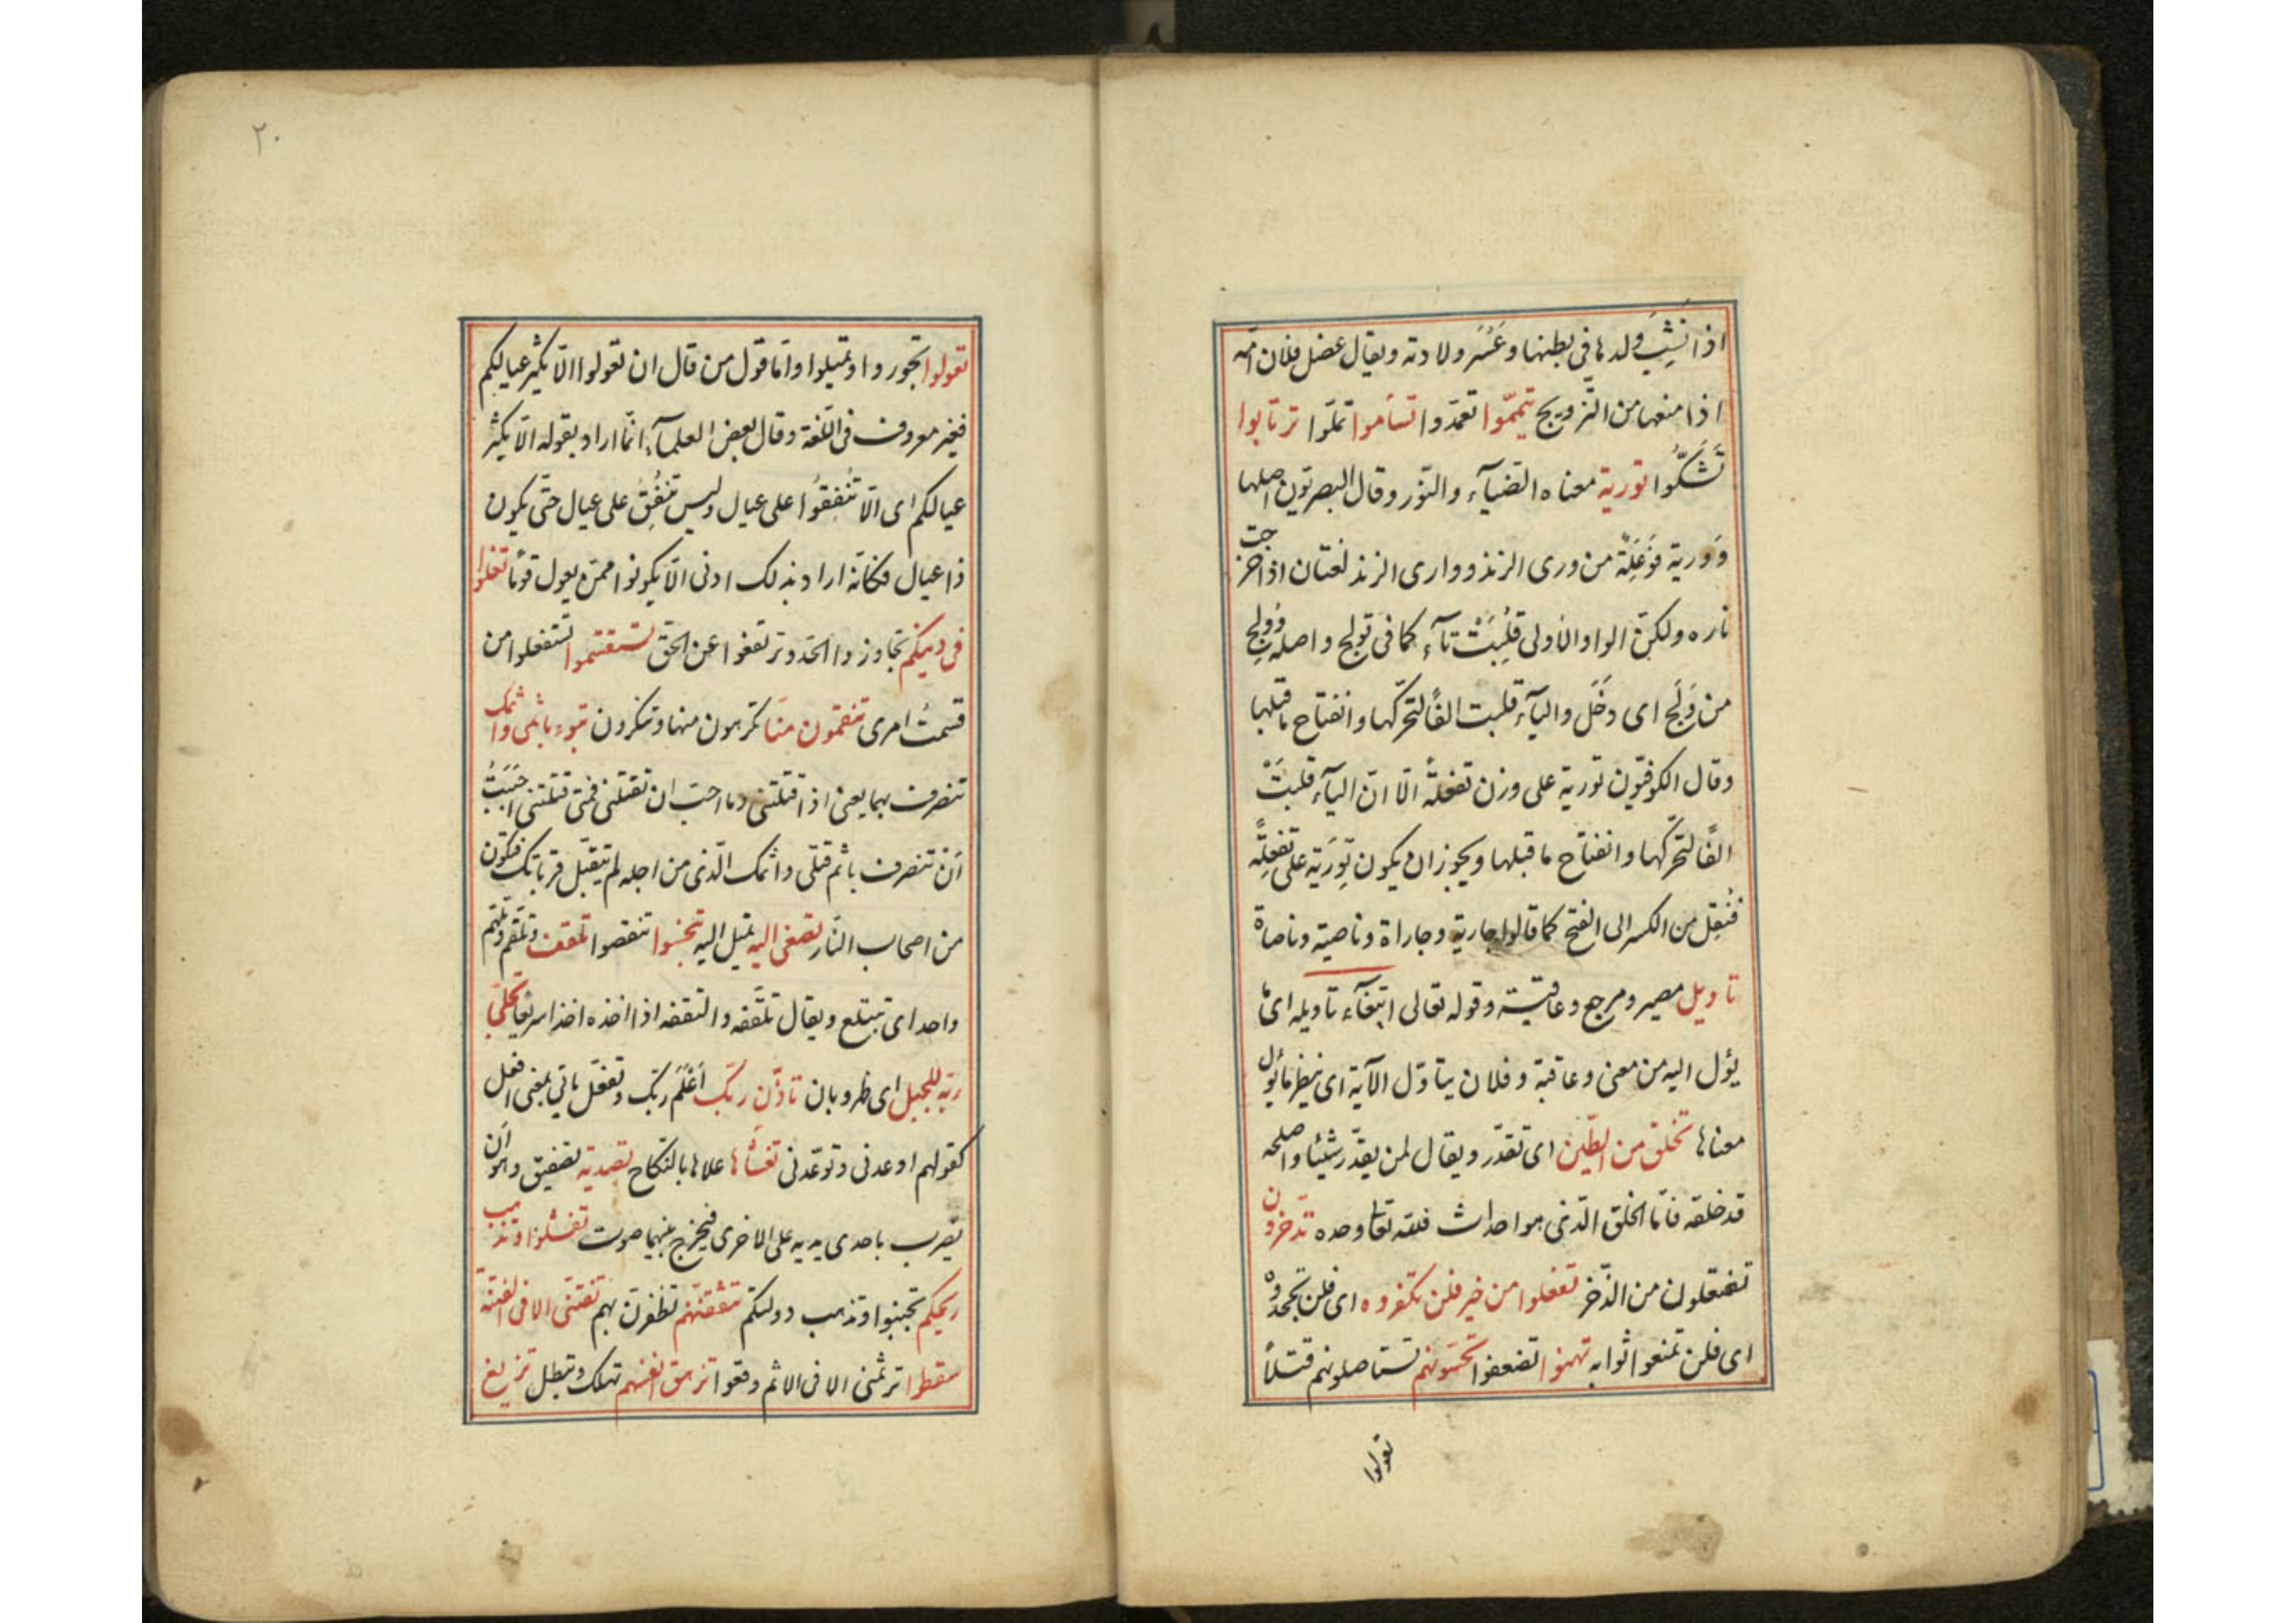 اذا نَشِبَ ولدها فى بطنها وعَسُر ولادته ويقال عضل فلان ايّمه
اذا منعها من التّزويج تيمّموا تعمّدوا تسأموا تملّوا ترتابوا
تَشكّوا تورية معناه الضّيآء والنّور وقال البصريّون اصلها
وَورية فَوعَلة من ورى الزند وورى الزند لغتان اذا خرجت
ناره ولكنّ الواو الاولى قُلِبَتْ تآء كما فى تولج واصله وَوْلج
من وَلَج اى دَخَل واليآء قلبت الفًا لتحرّكها وانفتاح ما قبلها
وقال الكوفيّون تورية على وزن تفعلة الّا انّ اليآء قلبتْ
الفًا لتحرّكها وانفتاح ما قبلها ويجوز ان يكون تورِية على تفعِلة
فنُقِل من الكسر الى الفتح كما قالوا جارية وجاراة وناصية وناصاة
تاويل مصير ومرجع وعاقبة وقوله تعالى ابتغآء تاويله اى ما
يؤل اليه من معنى وعاقبة وفلان يتاوّل الآية اى ينظر ما يؤل
معناها تخلق من الطّين اى تقدّر ويقال لمن يقدّر شيئا واصلحه
قد خلقه فامّا الخلق الّذى هو احداث فللّه تعا وحده تدّخرون
تفتعلون من الذّخر تفعلوا من خير فلن تكفروه اى فلن تجحدوه
اى فلن تمنعوا ثوابه تهنوا تضعفوا تحسّونهم تستاصلونهم قتلاً
تعولوا
٢٠
تعولوا تجوروا وتميلوا وامّا قول من قال ان تعولوا الّا يكثر عيالكم
فغير معروف فى اللّغة وقال بعض العلمآء انّما اراد بقوله الّا يكثر
عيالكم اى الّا تنفقُوا على عيال وليس تنفِق على عيال حتّى يكون
ذا عيال فكانّه اراد بذلك ادنى الّا يكونوا ممّن يعول قومًا تغلوا
فى دينكم تجاوزوا الحدّ وترتفعوا عن الحقّ تستقسموا تستفعلوا من
قسمتُ امرى تنقمون منّا تكرهون منها وتنكرون تبوء باثمى واثمك
تنصرف بهما يعنى اذا قتلتنى وما احبّ ان تقتلنى فمتى قتلتنى احببتُ
ان تنصرف باثم قتلى واثمك الّذى من اجله لم يتقبّل قربانك فتكون
من اصحاب النّار تصغى اليه تميل اليه تبخسوا تنقصوا تلقف وتلقم وتلهم
واحد اى تبتلع ويقال تلقّفه والتقفه اذا اخذه اخذا سريعًا تجلّى
ربّه للجبل اى ظهر وبان تاذّن ربّك اَعْلَمَ ربّك وتفعّل ياتى بمعنى افعل
كقولهم اوعدنى وتوعّدنى تغشّاها علاها بالنّكاح تصدية تصفيق وهو ان
يضرب باحدى يديه على الاخرى فيخرج بينهما صوت تفشلوا وتذهب
ريحكم تجبنوا وتذهب دولتكم تثقفنّهم تظفرنّ بهم تفتنّى الا فى الفتنة
سقطوا تؤثمنى الا فى الاثم وقعوا تزهق انفسهم تهلك وتبطل تزيغ